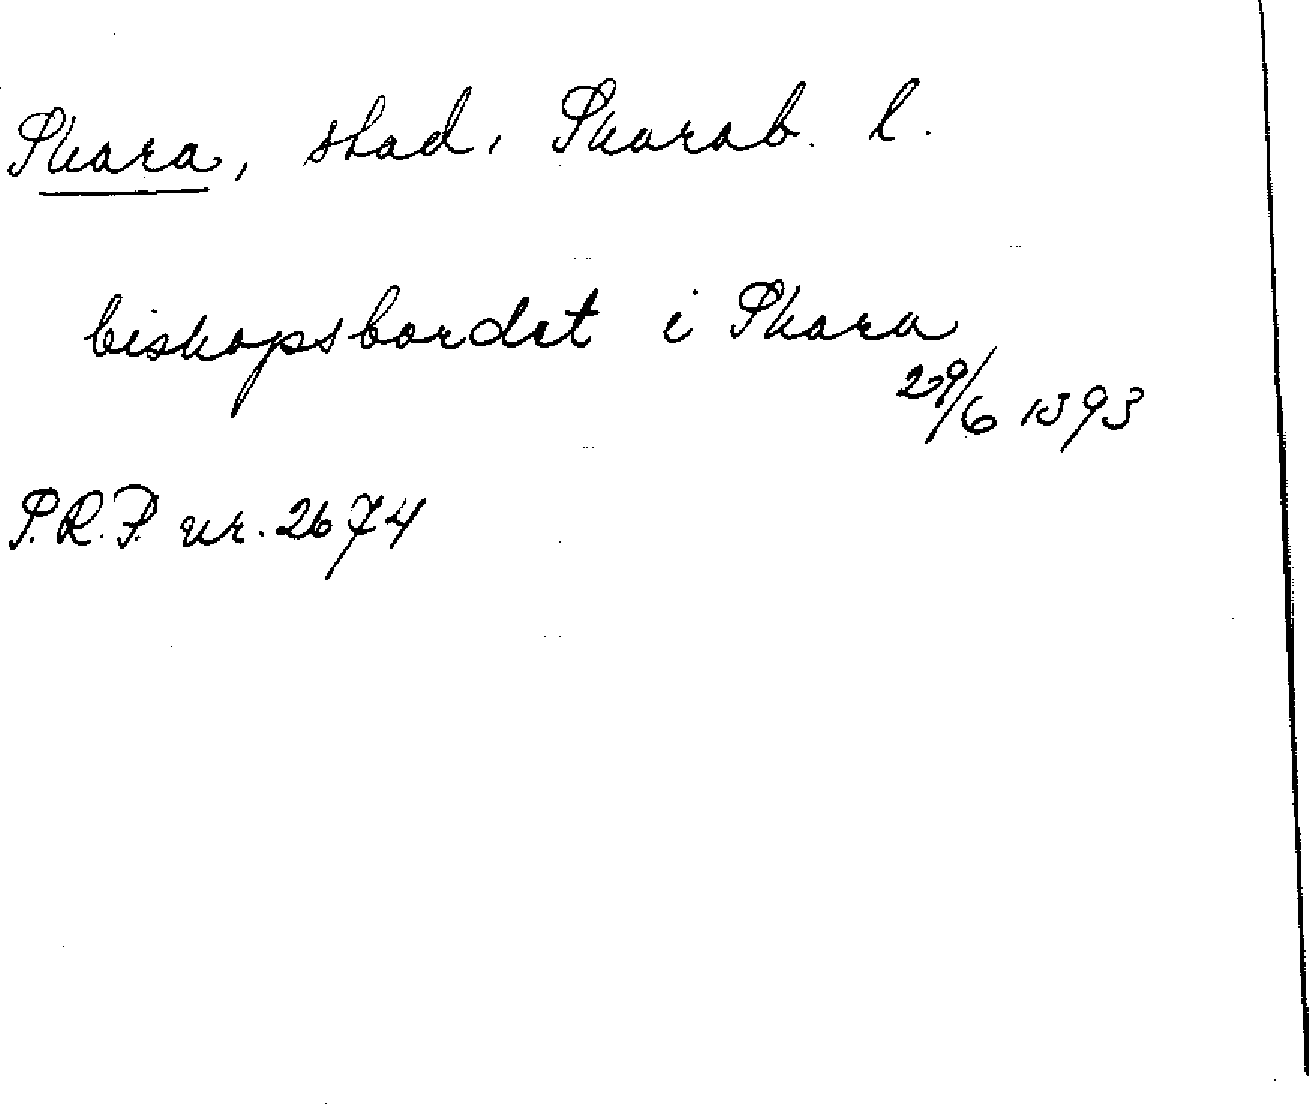 Skara, stad, Skarab. l.
biskopsbordet i Skara
29/6 1393
S.R.P. nr. 2674